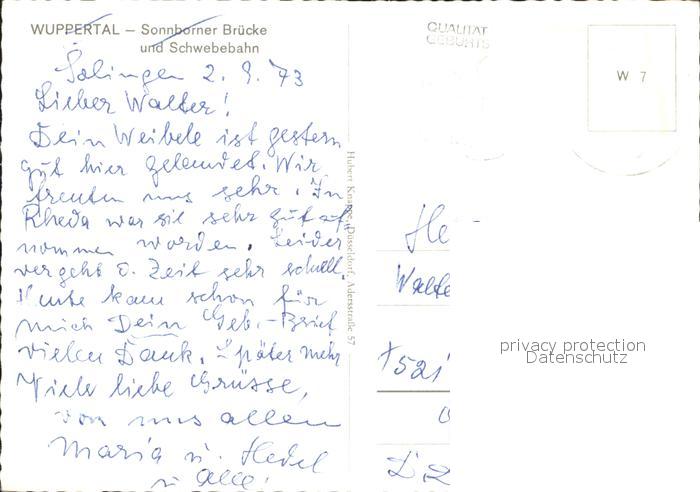 WUPPERTAL – Sonnborner Brücke
und Schwebebahn
Solingen 2. 9. 73
Lieber Walter!
Dein Weibele ist gestern
gut hier gelandet. Wir
freuten uns sehr. In
Rheda war sie sehr gut auf
nommen worden. Leider
vergeht d. Zeit sehr schnell.
Heute kam schon für
mich Dein Geb.-Brief
vielen Dank. Später mehr
Viele liebe Grüsse,
von uns allen
Maria u. Hedel
u alle!
Hubert Knippe, Düsseldorf, Adersstraße 57
QUALITÄT
GEBURTS
W 7
He
Walte
521
privacy protection
Datenschutz